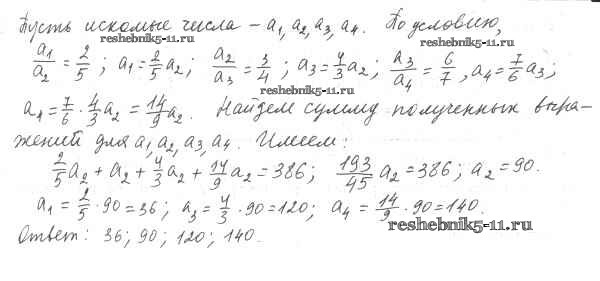 Пусть искомые числа – a₁, a₂, a₃, a₄. По условию,
reshebnik5-11.ru
a₁/a₂ = 2/5; a₁ = 2/5 a₂; a₂/a₃ = 3/4; a₃ = 4/3 a₂; a₃/a₄ = 6/7, a₄ = 7/6 a₃;
reshebnik5-11.ru
a₄ = 7/6 · 4/3 a₂ = 14/9 a₂. Найдем сумму полученных выра-
жений для a₁, a₂, a₃, a₄. Имеем:
2/5 a₂ + a₂ + 4/3 a₂ + 14/9 a₂ = 386; 193/45 a₂ = 386; a₂ = 90.
a₁ = 2/5 · 90 = 36; a₃ = 4/3 · 90 = 120; a₄ = 14/9 · 90 = 140.
reshebnik5-11.ru
Ответ: 36; 90; 120; 140.